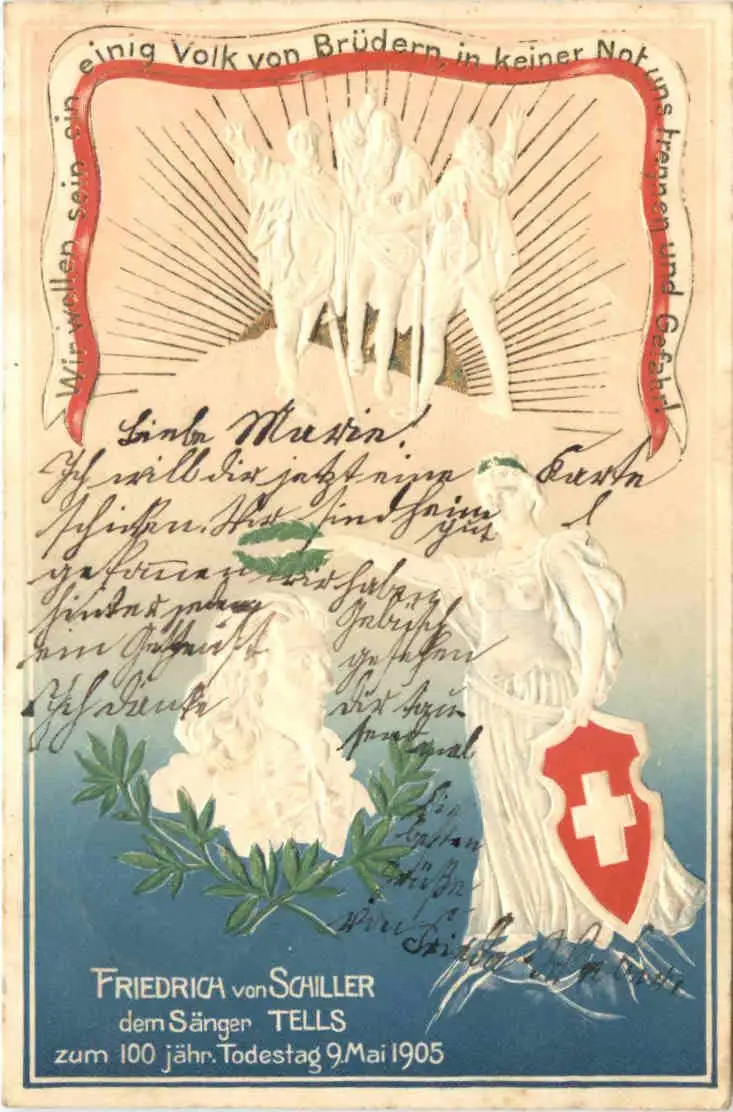 Wir wollen sein ein einig Volk von Brüdern, in keiner Not uns trennen und Gefahr!
Liebe Marie!
Ich will dir jetzt eine Karte
schicken. Wir sind heim
gut
gefahren wir haben
hinter jedem Gebüsch
ein gesehen
Ich danke dir tau-
send mal
Die
besten
Grüße
von
Frieda
FRIEDRICH von SCHILLER
dem Sänger TELLS
zum 100 jähr. Todestag 9. Mai 1905